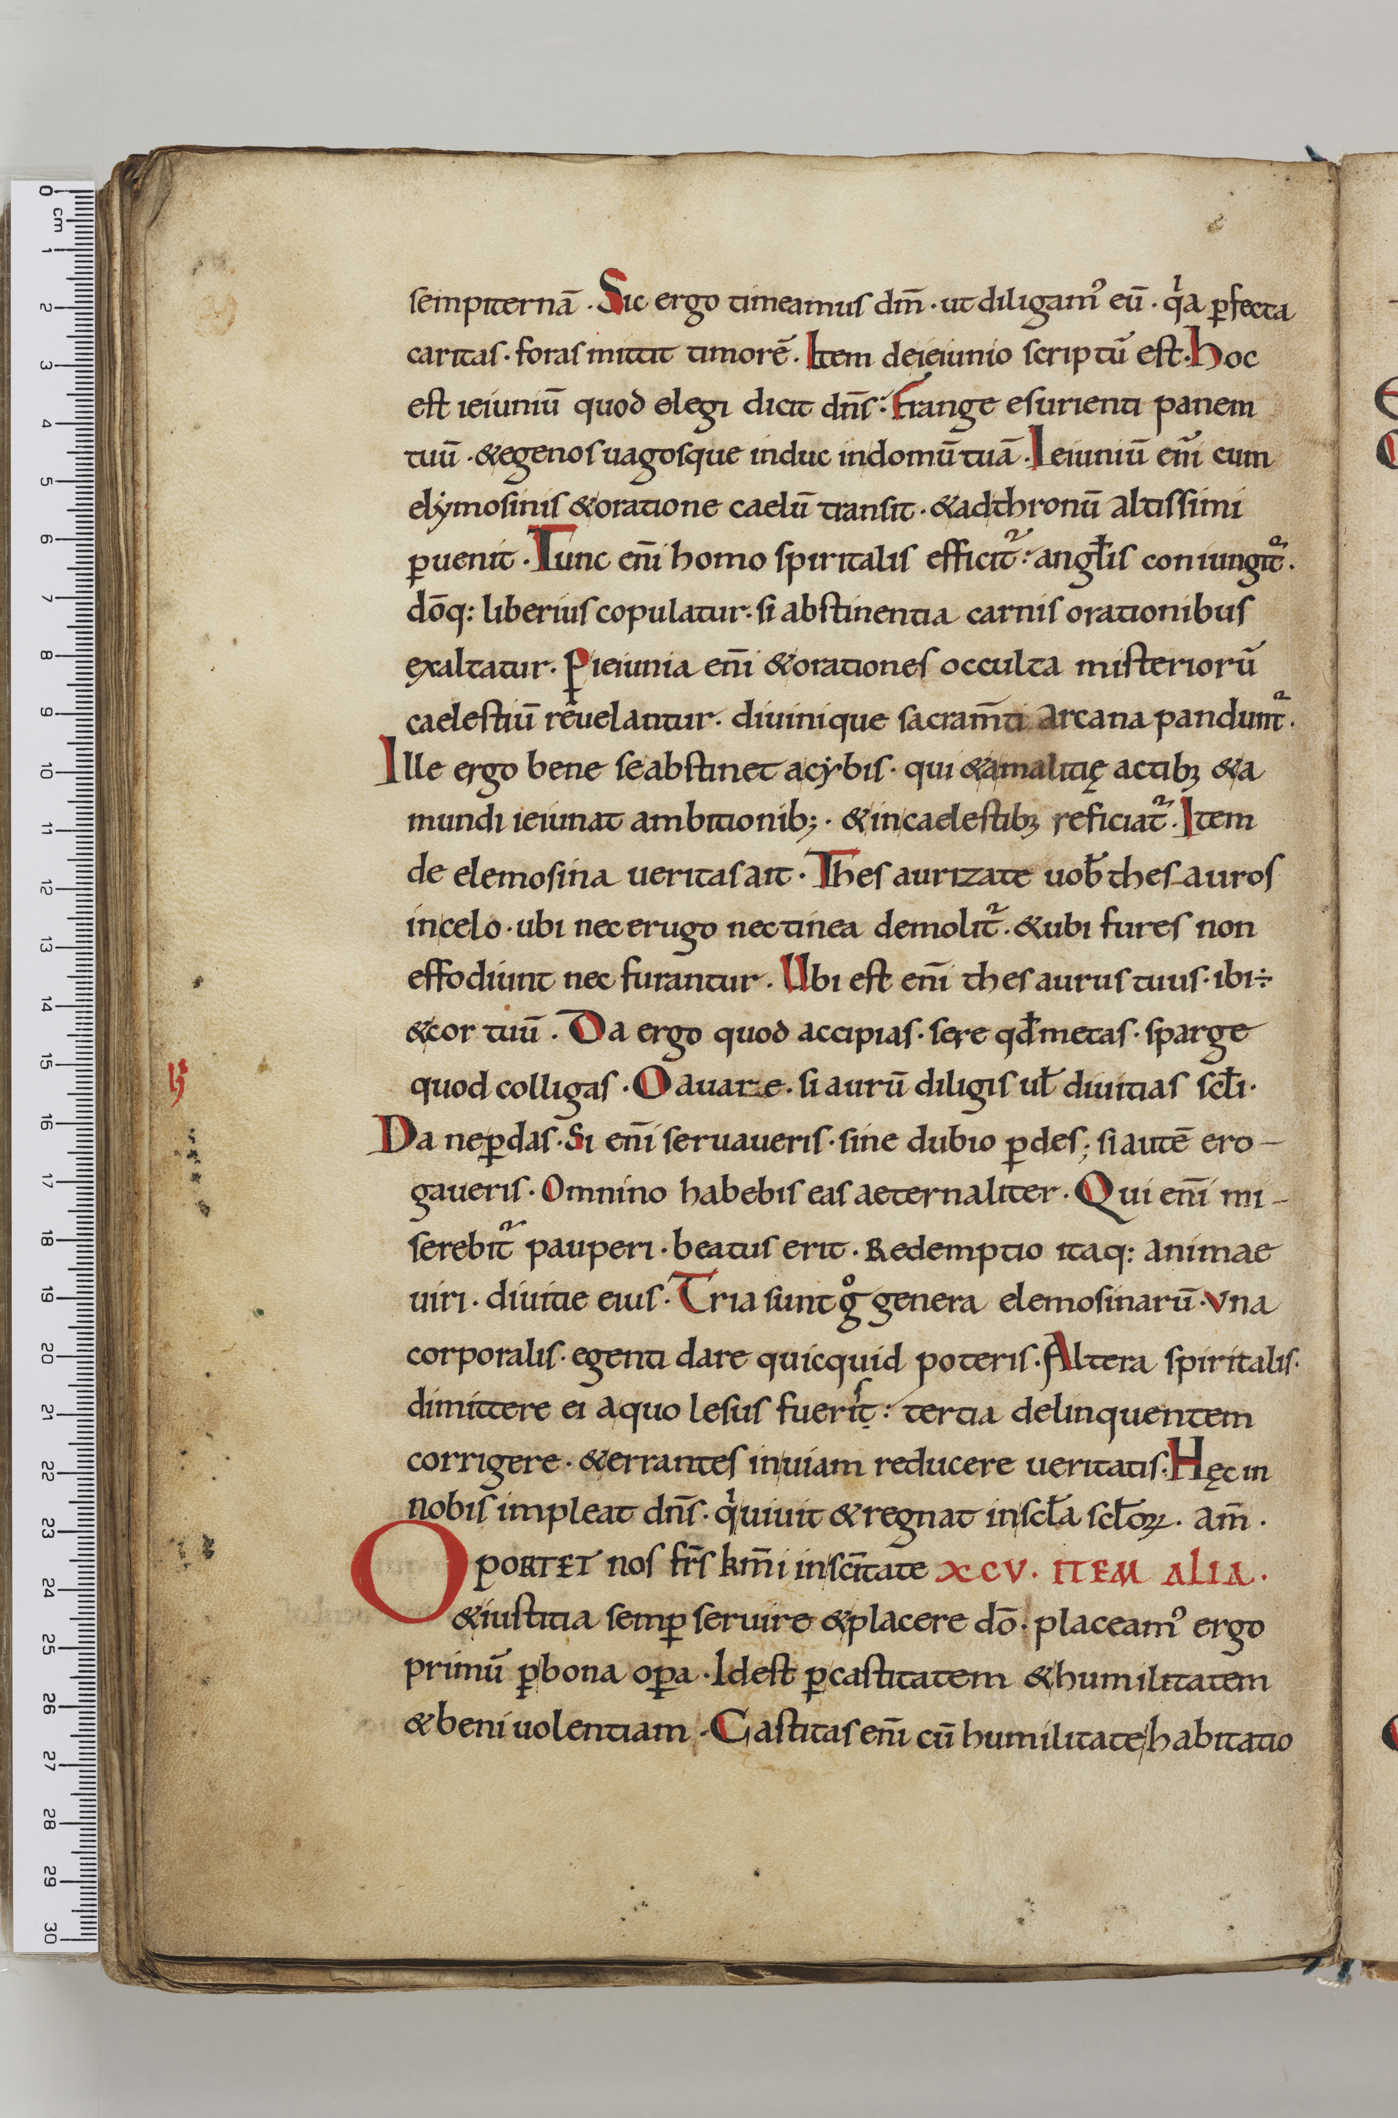 sempiternā · Sic ergo timeamus dm̄ · ut diligam᾽ eū · qͥa ꝑfecta
caritas · foras mittit timorē · Item deieiunio scriptū est · hoc
est ieiuniū quod elegi dicit dn̄s : Frange esurienti panem
tuū · &egenos uagosque induc indomū tuā · Ieiuniū eni̅ cum
elẏmosinis &oratione caelū transit · &adthronū altissimi
ꝑuenit · Tunc eni̅ homo spiritalis efficit᷑ : angl̄is coniungit᷑ ·
dōq: liberius copulatur · si abstinentia carnis orationibus
exaltatur · P̱ ieiunia eni̅ &orationes occulta misteriorū
caelestiū reuelantur · diuinique sacram̄ti arcana pandunt᷑ ·
Ille ergo bene seabstinet acẏbis · qui &amalitię actibꝫ &a
mundi ieiunat ambitionib; · &incaelestibꝫ reficiat᷑ · Item
de elemosina ueritas ait · Thesaurizate uob̄ thesauros
incelo · ubi nec erugo nec tinea demolit᷑ · &ubi fures non
effodiunt nec furantur · Ubi est eni̅ thesaurus tuus · ibi ÷
&cor tuū · Da ergo quod accipias · sere qd̄ metas · sparge
quod colligas · O auare · si aurū diligis ul̄ diuitias scl̄i ·
Da neꝑdas · Si eni̅ seruaueris · sine dubio ꝑdes ; si autē ero-
gaueris · Omnino habebis eas aeternaliter · Qui eni̅ mi-
serebit᷑ pauperi · beatus erit · Redemptio itaq: animae
uiri · diuitie eius · Tria sunt gͦ genera elemosinarū · Vna
corporalis · egenti dare quicquid poteris · Altera spiritalis ·
dimittere ei aquo lesus fuerit : tertia delinquentem
corrigere · &errantes inuiam reducere ueritatis · Hęc in
nobis impleat dn̄s · qͥ uiuit &regnat inscl̄a scl̄oꝝ · am̄ ·
OPORTET nos fr̄s km̄i insc̄itate XCV · ITEM ALIA ·
&iustitia semꝑ seruire &placere dō · placeam᾽ ergo
primū ꝑbona oꝑa · Idest ꝑcastitatem &humilitatem
&beniuolentiam · Castitas eni̅ cū humilitate habitatio